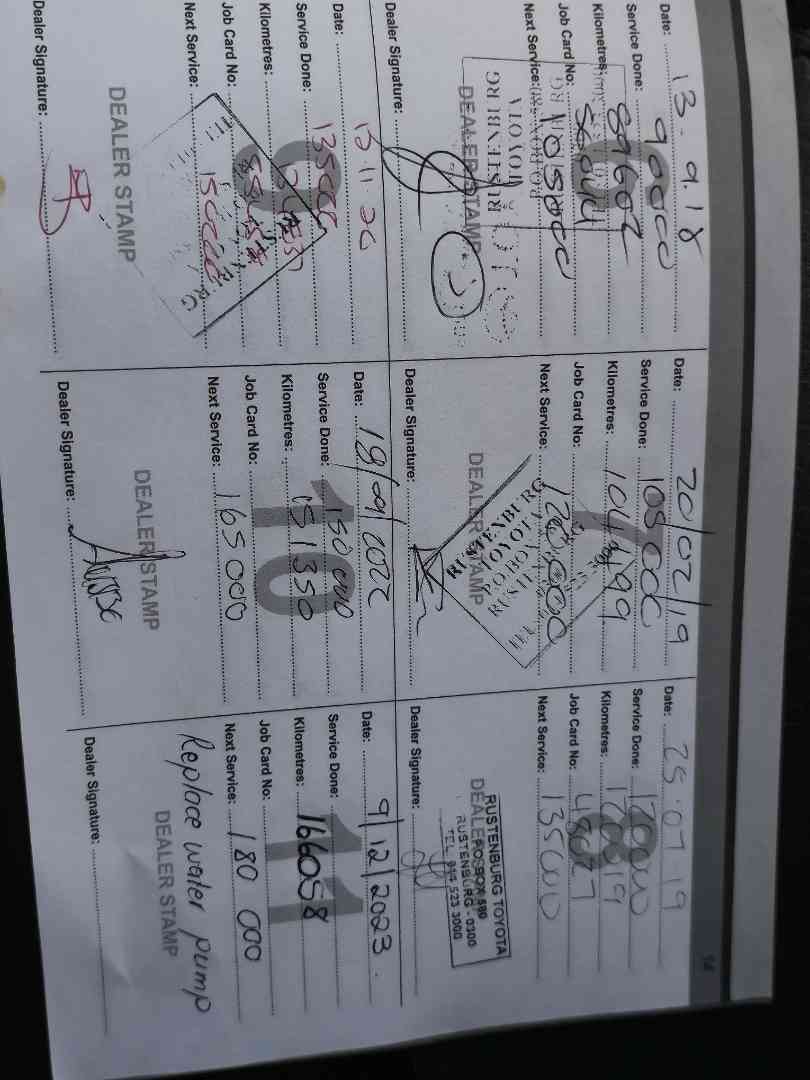 6
Date: 13.9.18
Service Done: 90000
Kilometres: 89602
Job Card No:
Next Service: 105000
DEALER STAMP
RUSTENBURG
TOYOTA
Dealer Signature:
7
Date: 20/02/19
Service Done: 105000
Kilometres: 104199
Job Card No:
Next Service: 120,000
DEALER STAMP
RUSTENBURG
TOYOTA
PO BOX
Dealer Signature:
14
8
Date: 25.07.19
Service Done: 120000
Kilometres:
Job Card No:
Next Service: 135000
DEALER STAMP
RUSTENBURG TOYOTA
PO BOX 580
RUSTENBURG - 0300
TEL 014 523 3000
Dealer Signature:
9
Date: 13.11.20
Service Done: 135000
Kilometres:
Job Card No:
Next Service: 150000
DEALER STAMP
Dealer Signature:
10
Date: 19/09/2022
Service Done: 150 000
Kilometres: 151350
Job Card No:
Next Service: 165000
DEALER STAMP
Dealer Signature:
11
Date: 9/12/2023.
Service Done:
Kilometres: 166058
Job Card No:
Next Service: 180 000
Replace water pump
DEALER STAMP
Dealer Signature: